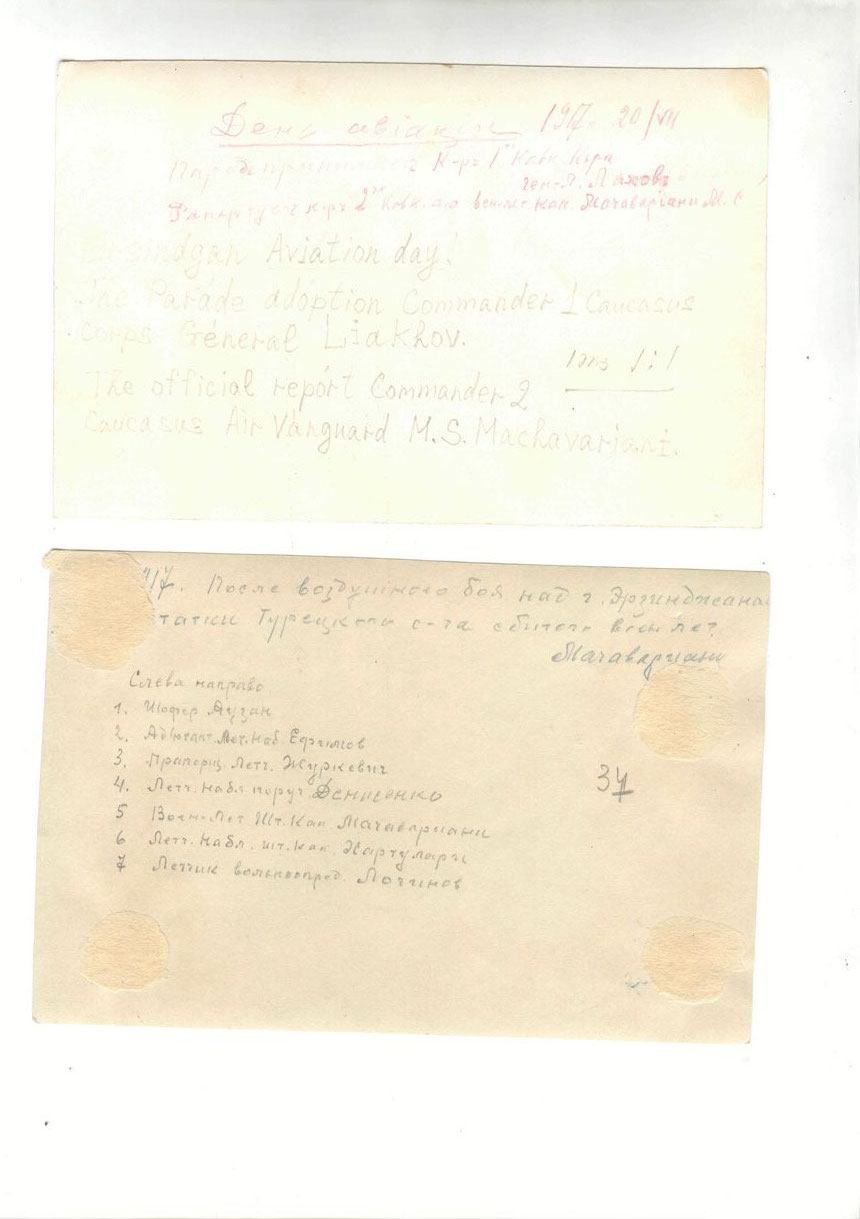 День авіаціи 1917. 20/VII
Парад принимает К-ръ 1го Кавк. К-ра
ген-л. Ляховъ
Рапортует к-ръ 2го Кавк. а-о воен-лет. кап. Мачавариани М. С
Aviation day!
The Parade adoption Commander 1 Caucasus
Corps General Liakhov.
1:1
The official report Commander 2
Caucasus Air Vanguard M.S. Machavariani.
917. После воздушного боя над г. Эрзинджана
статки Турецкого с-та сбитого воен лет.
Мачавариани
Слева направо
1. Шофер Аузан
2. Адъютант Лет. Наб. Ефимов
3. Прапорщ. Летч. Журкевич
4. Летч. набл поруч Денисенко
5 Воен-Лет Шт. Кап Мачавариани
6 Летч. Набл. шт. кап. Хартулари
7 Летчик вольноопред. Лотинов
37